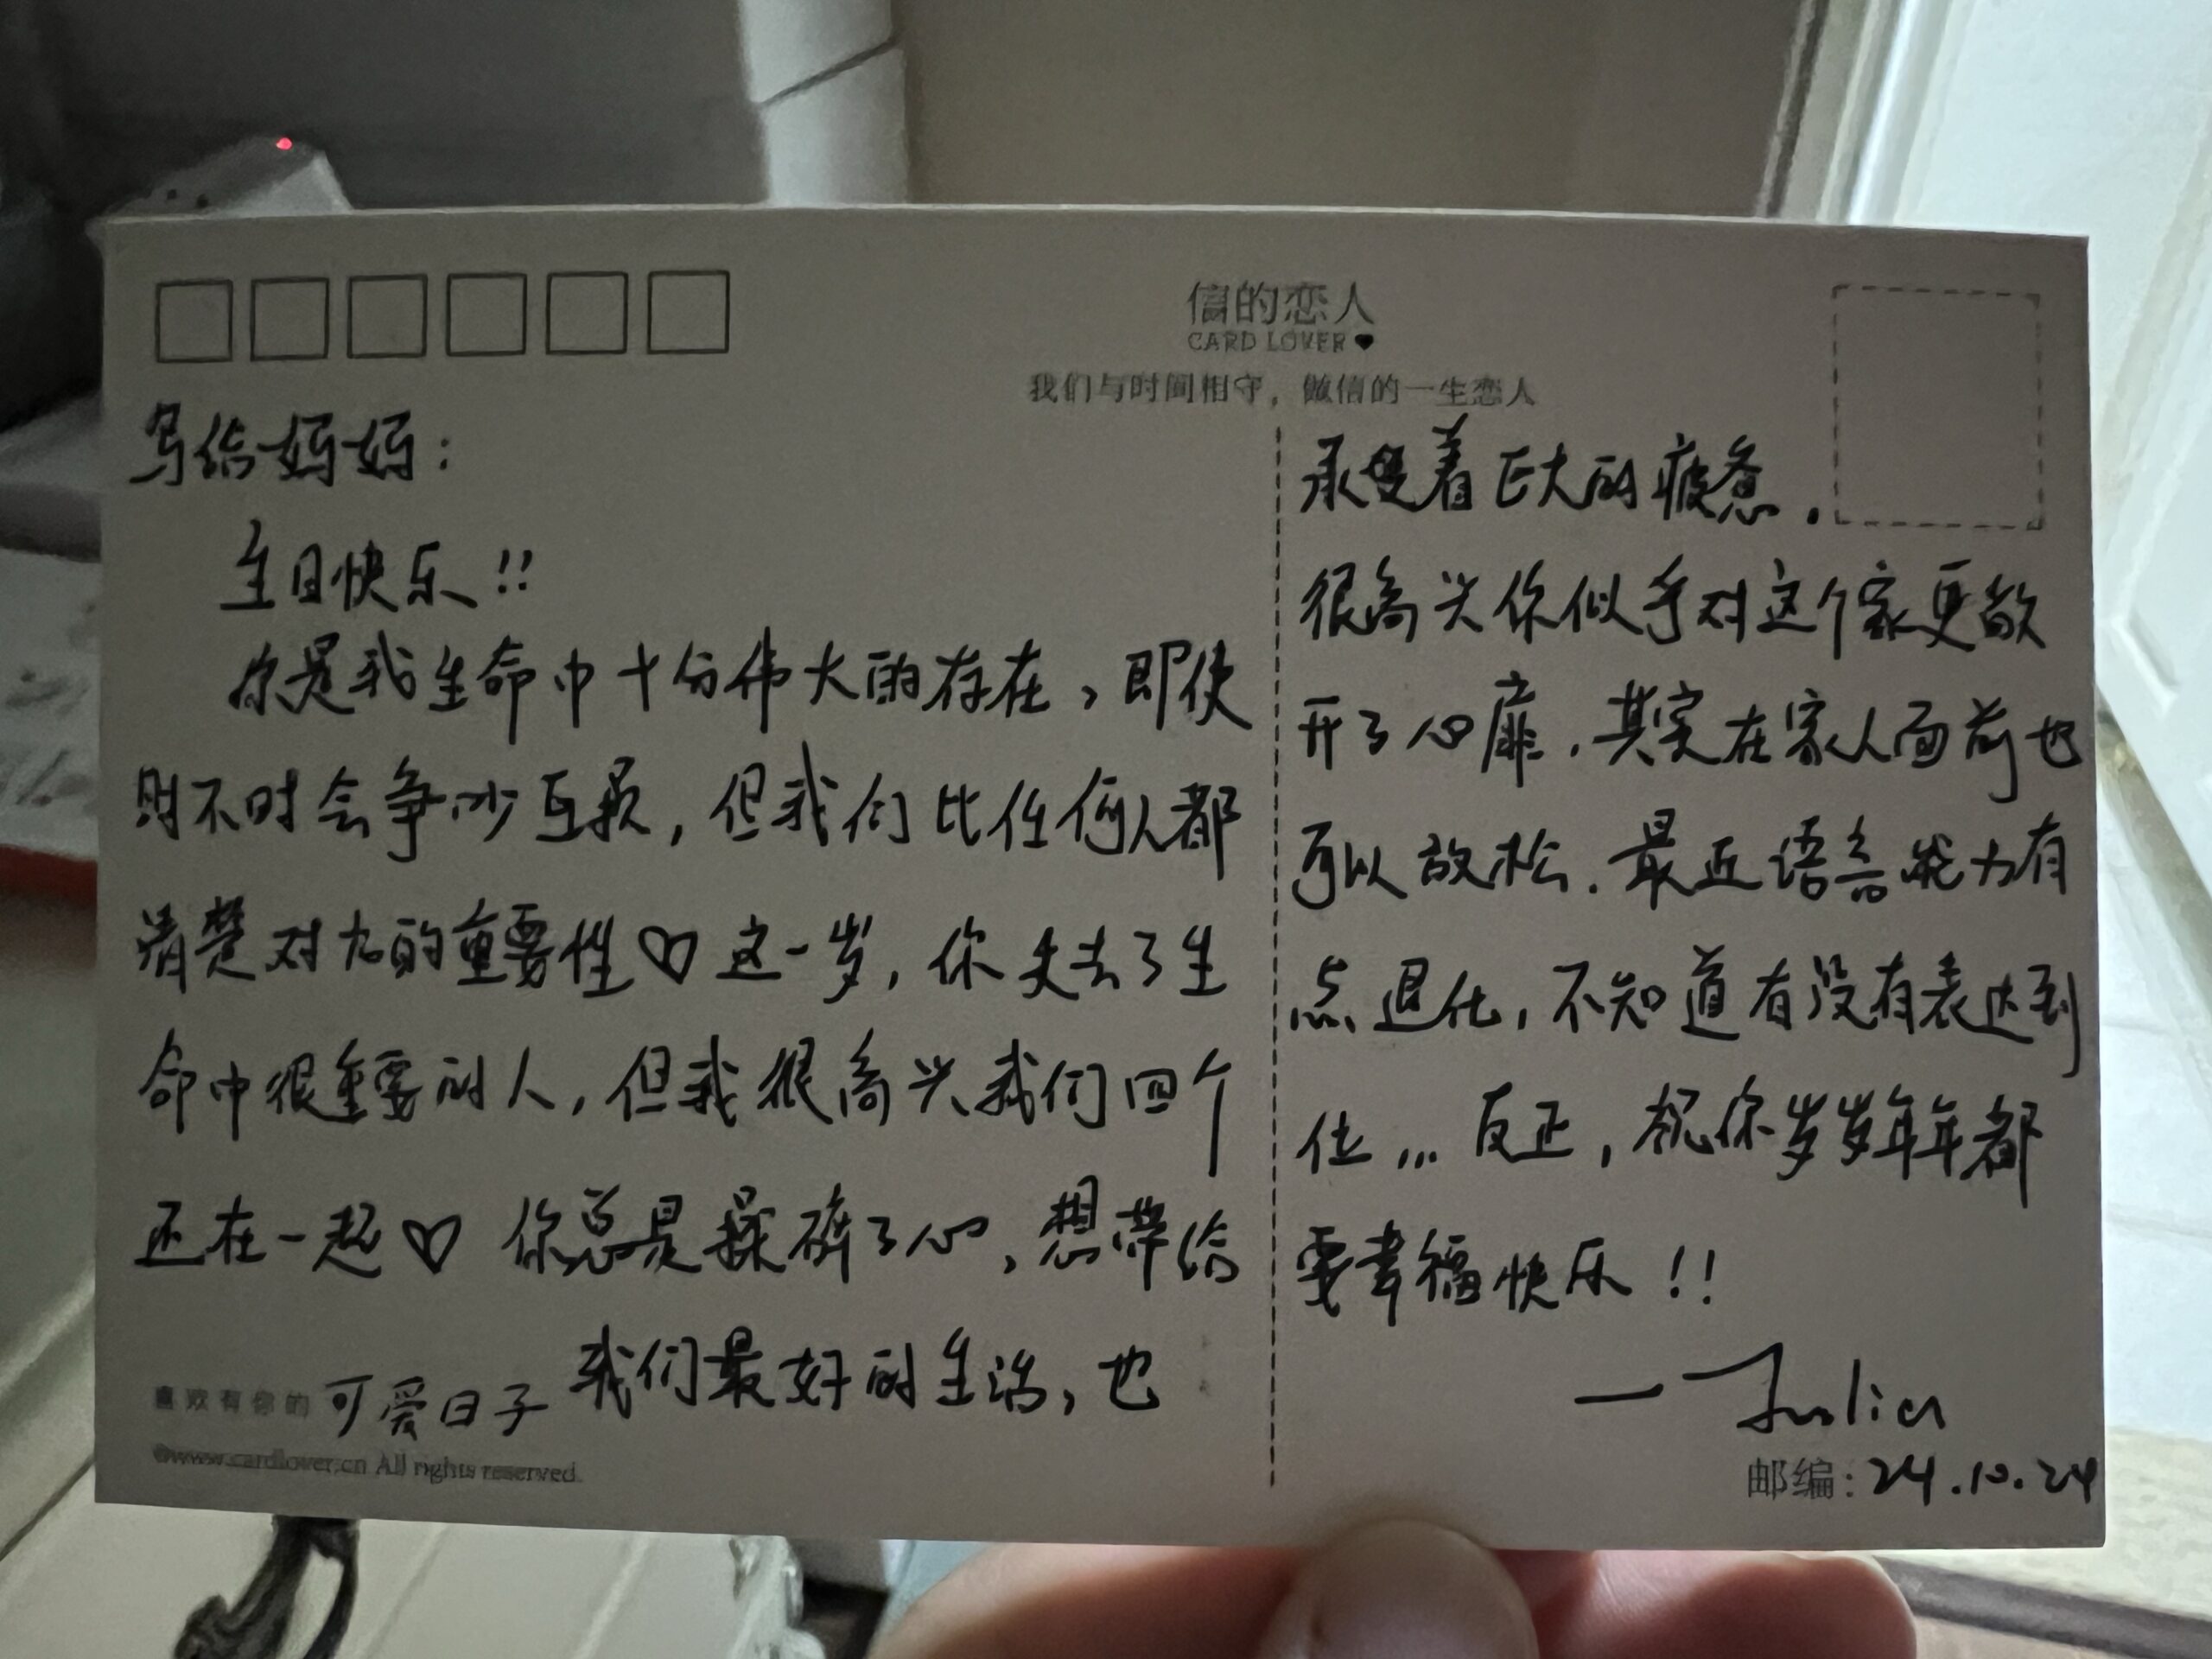 信的恋人
CARD LOVER
我们与时间相守，做信的一生恋人
写给妈妈：
生日快乐!!
你是我生命中十分伟大的存在，即使
时不时会争吵互损，但我们比任何人都
清楚对方的重要性♡这一岁，你失去了生
命中很重要的人，但我很高兴我们四个
还在一起♡ 你总是操碎了心，想带给
我们最好的生活，也
承受着巨大的疲惫.
很高兴你似乎对这个家更敞
开了心扉.其实在家人面前也
可以放松.最近语言能力有
点退化，不知道有没有表达到
位...反正，祝你岁岁年年都
要幸福快乐!!
—Julia
喜欢有你的可爱日子
©www.cardlover.cn All rights reserved.
邮编：24.10.24